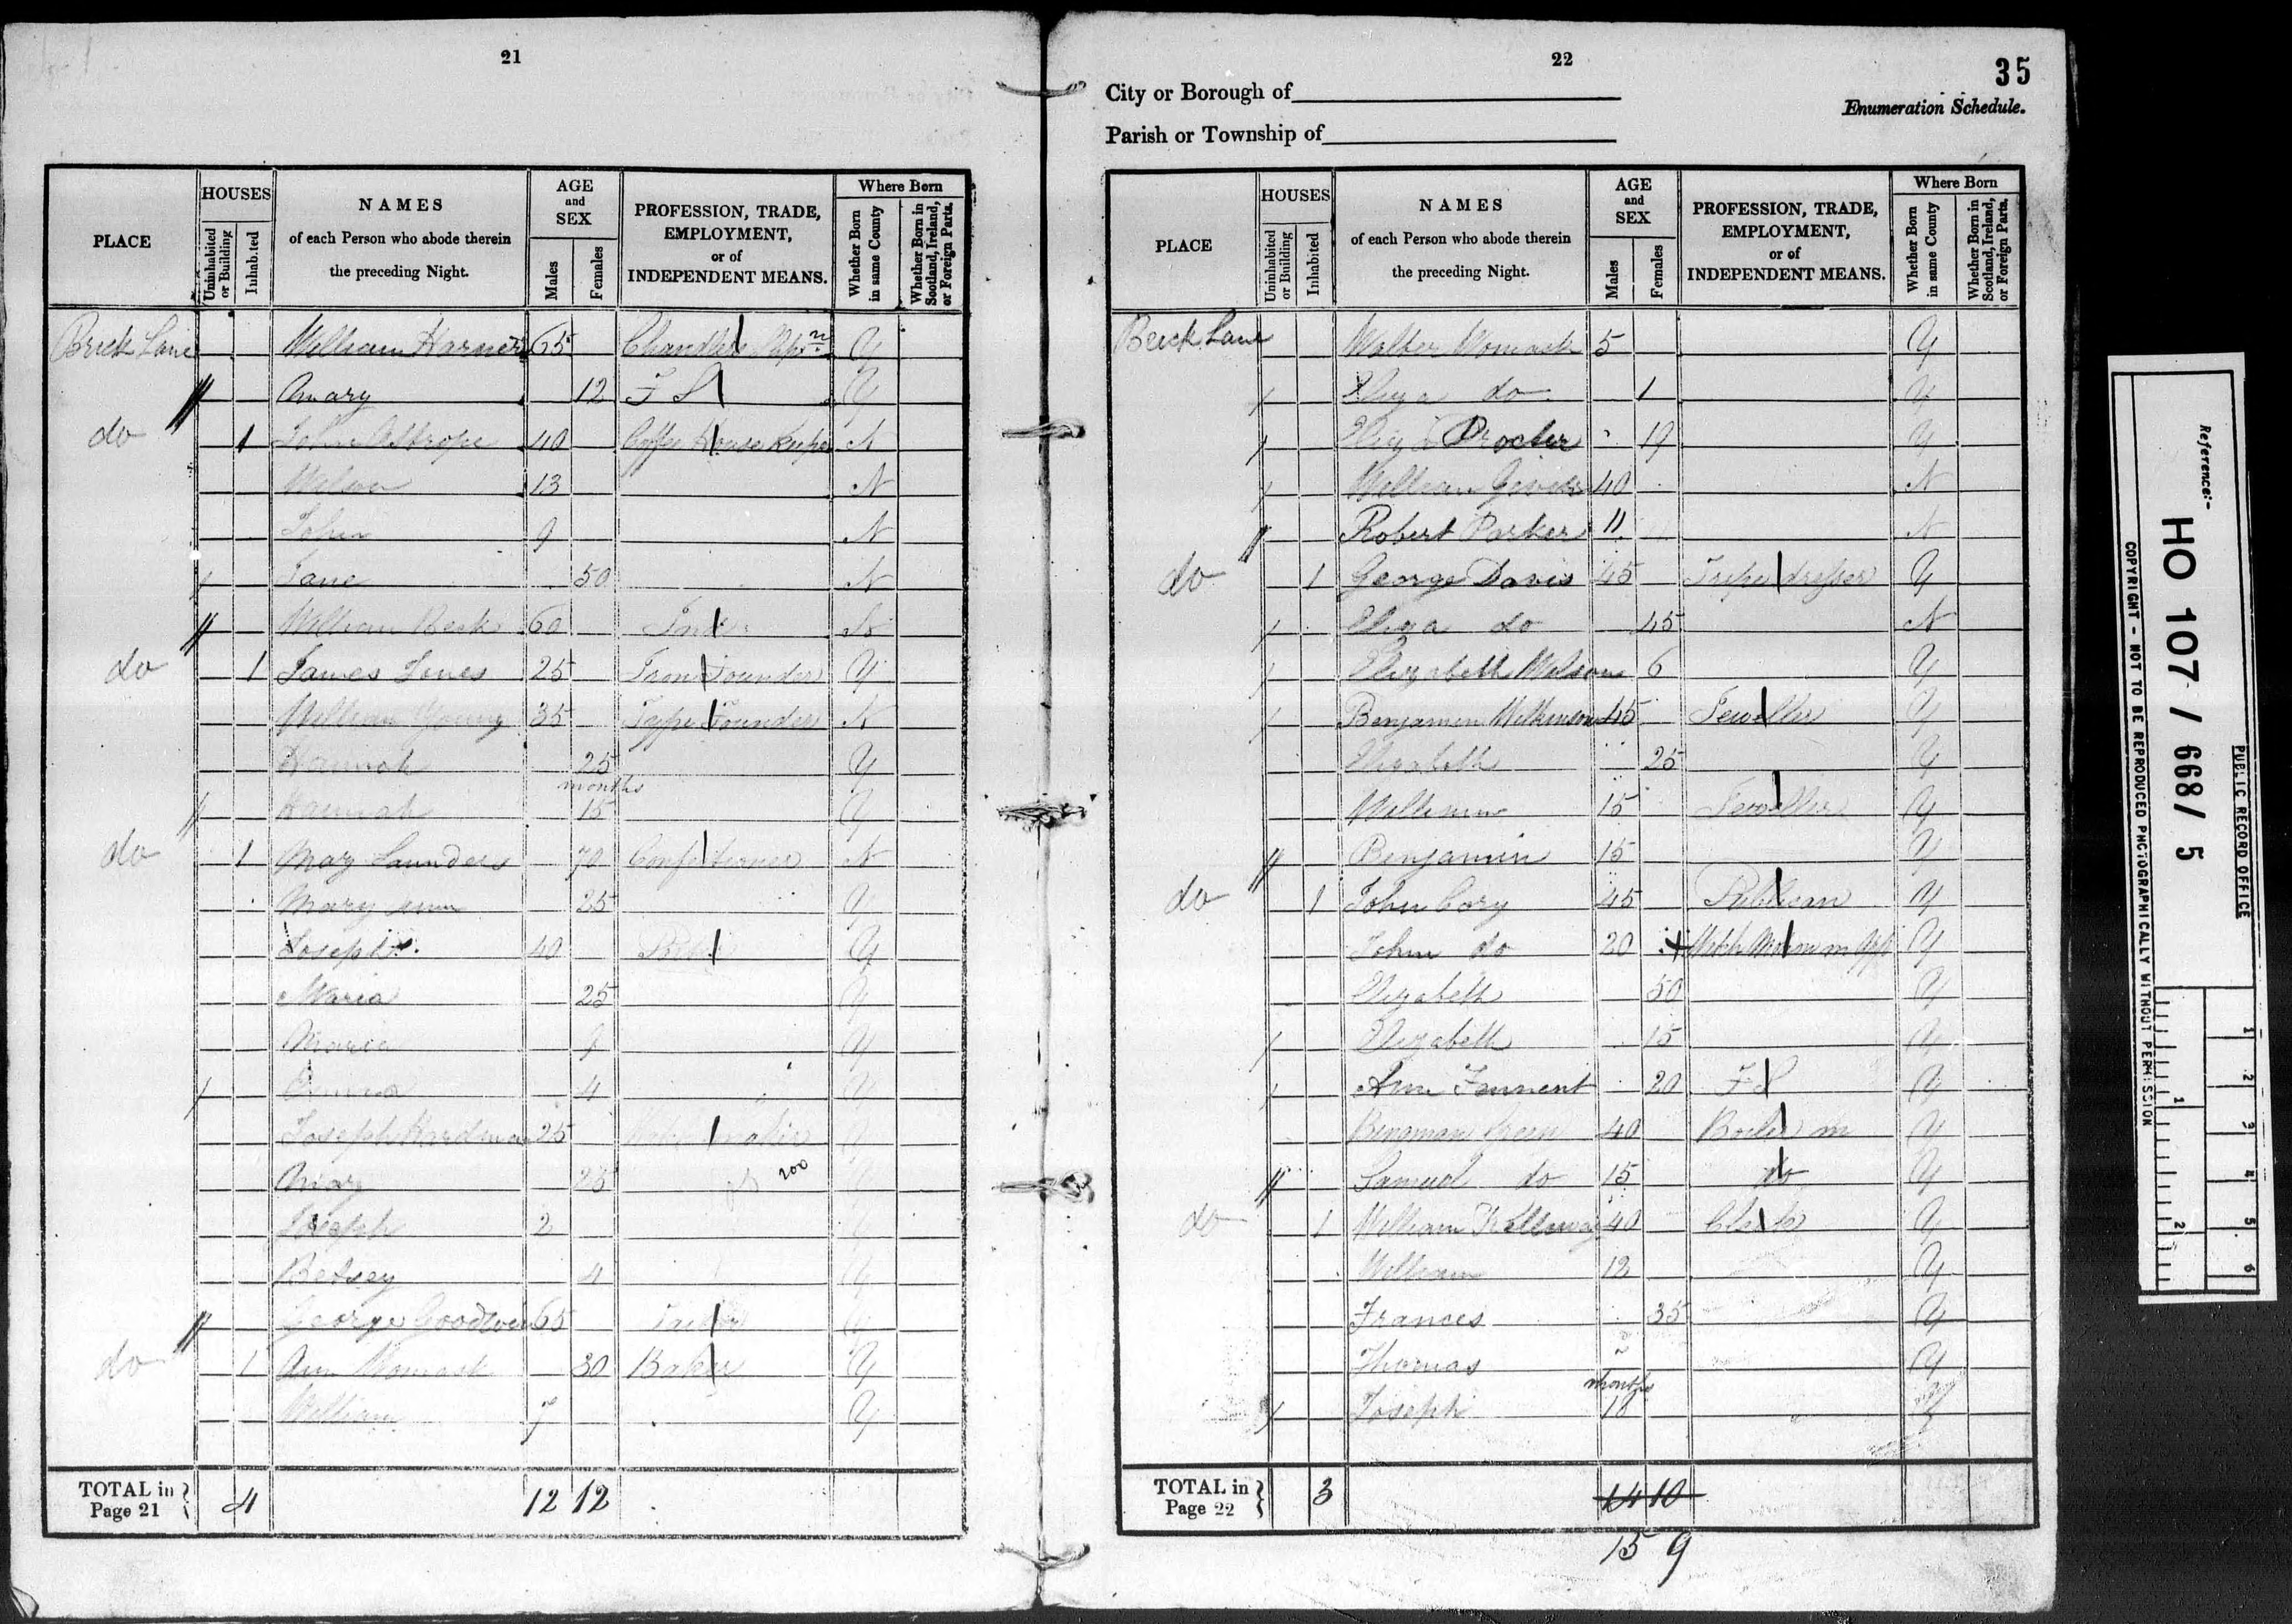 21
PLACE
HOUSES
Uninhabited or Building
Inhabited
NAMES
of each Person who abode therein
the preceding Night.
AGE
and
SEX
Males
Females
PROFESSION, TRADE,
EMPLOYMENT,
or of
INDEPENDENT MEANS.
Where Born
Whether Born in same County
Whether Born in Scotland, Ireland, or Foreign Parts.
Brick Lane William Harner 65 Y
Mary 12 F S Y
do 1 John Althrope 40 Coffee House Keeper N
Wilson 13 N
John 9 N
Jane 50 N
William Beck 60 Ind N
do 1 James Jones 25 Iron Founder Y
William Young 35 Type Founder N
Hannah 25 Y
months
Hannah 15 Y
do 1 Mary Saunders 70 Confectioner N
Mary Ann 35 Y
Joseph 40 Y
Maria 25 Y
Maria 9 Y
Emma 4 Y
Joseph Hardman 25 maker Y
Mary 25 Y
200
Joseph 2 Y
Betsey 4 Y
George Goodwin 65 Y
do 1 Ann Womack 30 Baker Y
William 7 Y
TOTAL in
Page 21 4 12 12
22
35
City or Borough of
Enumeration Schedule.
Parish or Township of
PLACE
HOUSES
Uninhabited or Building
Inhabited
NAMES
of each Person who abode therein
the preceding Night.
AGE
and
SEX
Males
Females
PROFESSION, TRADE,
EMPLOYMENT,
or of
INDEPENDENT MEANS.
Where Born
Whether Born in same County
Whether Born in Scotland, Ireland, or Foreign Parts.
Brick Lane Walter Womack 5 Y
Eliza do 1 Y
Eliz Procter 19 Y
William 40 N
Robert Parker 11 N
do 1 George Davis 45 Tripe dresser Y
Eliza do 45 N
Elizabeth Wilson 6 Y
Benjamin Wilkinson 45 Jeweller Y
Elizabeth 25 Y
William 15 Jeweller Y
Benjamin 15 Y
do 1 John Cory 45 Publican Y
John do 20 Y
Elizabeth 50 Y
Elizabeth 15 Y
Ann Tennent 20 F S Y
Green 40 Boiler m Y
Samuel do 15 do Y
do 1 William 40 Clerk Y
William 12 Y
Frances 35 Y
Thomas Y
months
Joseph 10 Y
TOTAL in
Page 22 3 14 10
15 9
Reference:-
HO 107 / 668 / 5
PUBLIC RECORD OFFICE
COPYRIGHT - NOT TO BE REPRODUCED PHOTOGRAPHICALLY WITHOUT PERMISSION
1 2 3 4 5 6
1 2